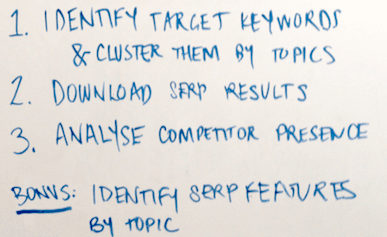 1. IDENTIFY TARGET KEYWORDS
& CLUSTER THEM BY TOPICS
2. DOWNLOAD SERP RESULTS
3. ANALYSE COMPETITOR PRESENCE
BONUS: IDENTIFY SERP FEATURES
BY TOPIC